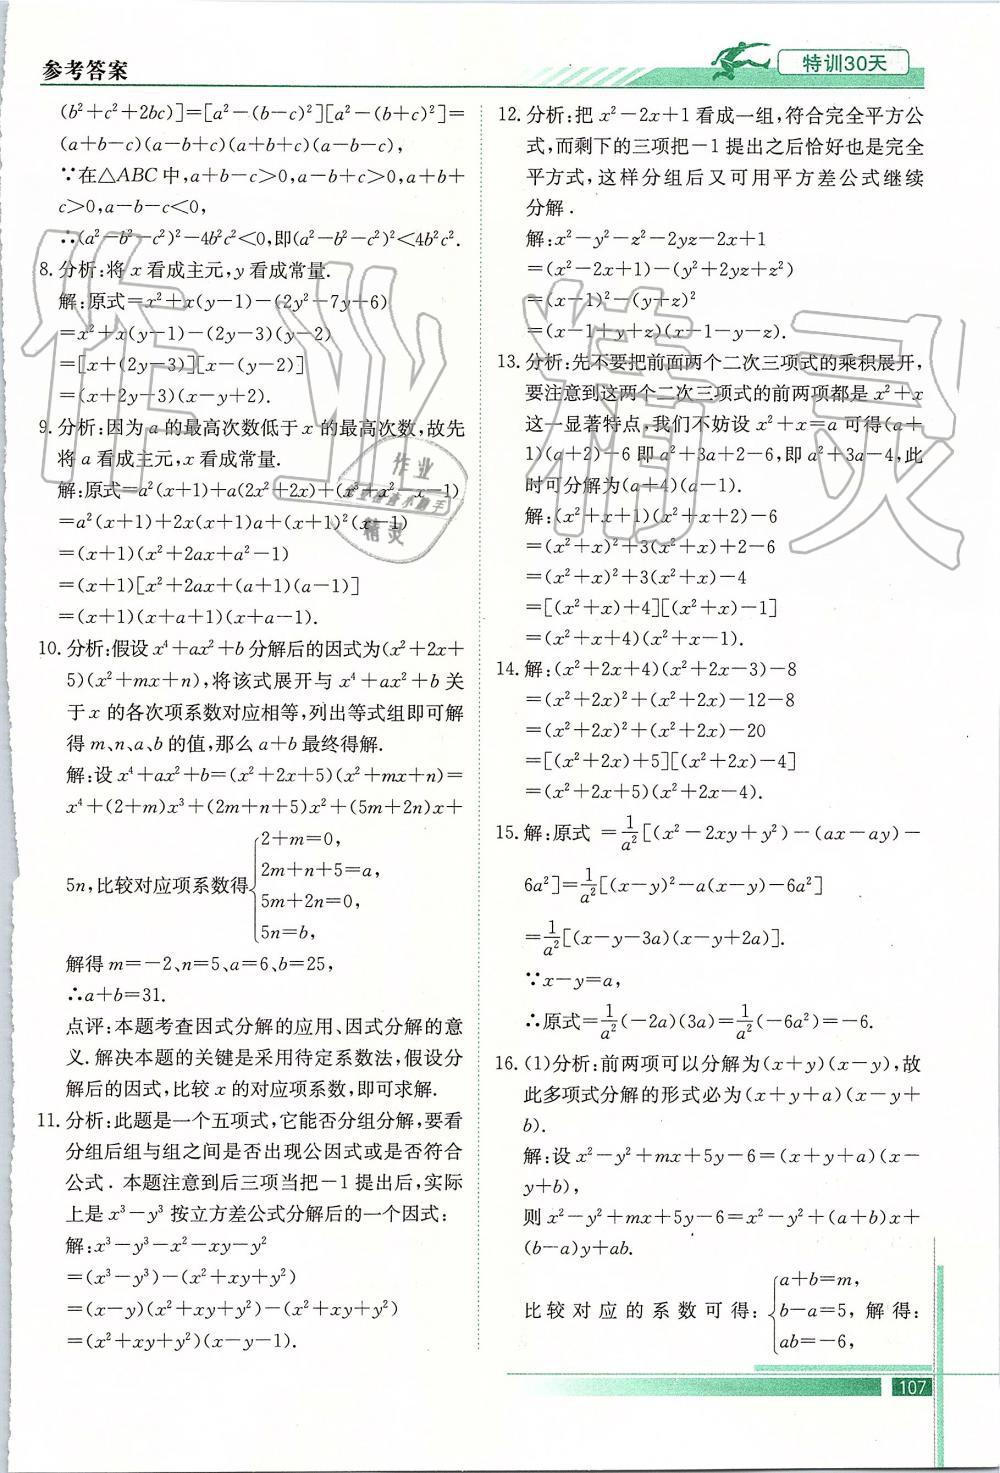 参考答案
特训30天
(b²+c²+2bc)]=[a²-(b-c)²][a²-(b+c)²]=
(a+b-c)(a-b+c)(a+b+c)(a-b-c),
∵在△ABC中,a+b-c>0,a-b+c>0,a+b+
c>0,a-b-c<0,
∴(a²-b²-c²)²-4b²c²<0,即(a²-b²-c²)²<4b²c².
8. 分析:将 x 看成主元,y 看成常量.
解:原式=x²+x(y-1)-(2y²-7y+6)
=x²+x(y-1)-(2y-3)(y-2)
=[x+(2y-3)][x-(y-2)]
=(x+2y-3)(x-y+2).
9. 分析:因为 a 的最高次数低于 x 的最高次数,故先
将 a 看成主元,x 看成常量.
解:原式=a²(x+1)+a(2x²+2x)+(x³+x²-x-1)
=a²(x+1)+2x(x+1)a+(x+1)²(x-1)
=(x+1)(x²+2ax+a²-1)
=(x+1)[x²+2ax+(a+1)(a-1)]
=(x+1)(x+a+1)(x+a-1).
10. 分析:假设 x⁴+ax²+b 分解后的因式为(x²+2x+
5)(x²+mx+n),将该式展开与 x⁴+ax²+b 关
于 x 的各次项系数对应相等,列出等式组即可解
得 m、n、a、b 的值,那么 a+b 最终得解.
解:设 x⁴+ax²+b=(x²+2x+5)(x²+mx+n)=
x⁴+(2+m)x³+(2m+n+5)x²+(5m+2n)x+
2+m=0,
2m+n+5=a,
5n,比较对应项系数得
5m+2n=0,
5n=b,
解得 m=-2、n=5、a=6、b=25,
∴a+b=31.
点评:本题考查因式分解的应用、因式分解的意
义.解决本题的关键是采用待定系数法,假设分
解后的因式,比较 x 的对应项系数,即可求解.
11. 分析:此题是一个五项式,它能否分组分解,要看
分组后组与组之间是否出现公因式或是否符合
公式. 本题注意到后三项当把-1 提出后,实际
上是 x³-y³ 按立方差公式分解后的一个因式:
解:x³-y³-x²-xy-y²
=(x³-y³)-(x²+xy+y²)
=(x-y)(x²+xy+y²)-(x²+xy+y²)
=(x²+xy+y²)(x-y-1).
12. 分析:把 x²-2x+1 看成一组,符合完全平方公
式,而剩下的三项把-1 提出之后恰好也是完全
平方式,这样分组后又可用平方差公式继续
分解.
解:x²-y²-z²-2yz-2x+1
=(x²-2x+1)-(y²+2yz+z²)
=(x-1)²-(y+z)²
=(x-1+y+z)(x-1-y-z).
13. 分析:先不要把前面两个二次三项式的乘积展开,
要注意到这两个二次三项式的前两项都是 x²+x
这一显著特点,我们不妨设 x²+x=a 可得(a+
1)(a+2)-6 即 a²+3a+2-6,即 a²+3a-4,此
时可分解为(a+4)(a-1).
解:(x²+x+1)(x²+x+2)-6
=(x²+x)²+3(x²+x)+2-6
=(x²+x)²+3(x²+x)-4
=[(x²+x)+4][(x²+x)-1]
=(x²+x+4)(x²+x-1).
14. 解:(x²+2x+4)(x²+2x-3)-8
=(x²+2x)²+(x²+2x)-12-8
=(x²+2x)²+(x²+2x)-20
=[(x²+2x)+5][(x²+2x)-4]
=(x²+2x+5)(x²+2x-4).
15. 解:原式 =1/a²[(x²-2xy+y²)-(ax-ay)-
6a²]=1/a²[(x-y)²-a(x-y)-6a²]
=1/a²[(x-y-3a)(x-y+2a)].
∵x-y=a,
∴原式=1/a²(-2a)(3a)=1/a²(-6a²)=-6.
16. (1)分析:前两项可以分解为(x+y)(x-y),故
此多项式分解的形式必为(x+y+a)(x-y+
b).
解:设 x²-y²+mx+5y-6=(x+y+a)(x-
y+b),
则 x²-y²+mx+5y-6=x²-y²+(a+b)x+
(b-a)y+ab.
a+b=m,
比较对应的系数可得: b-a=5, 解得:
ab=-6,
107
作业精灵
作业
精灵